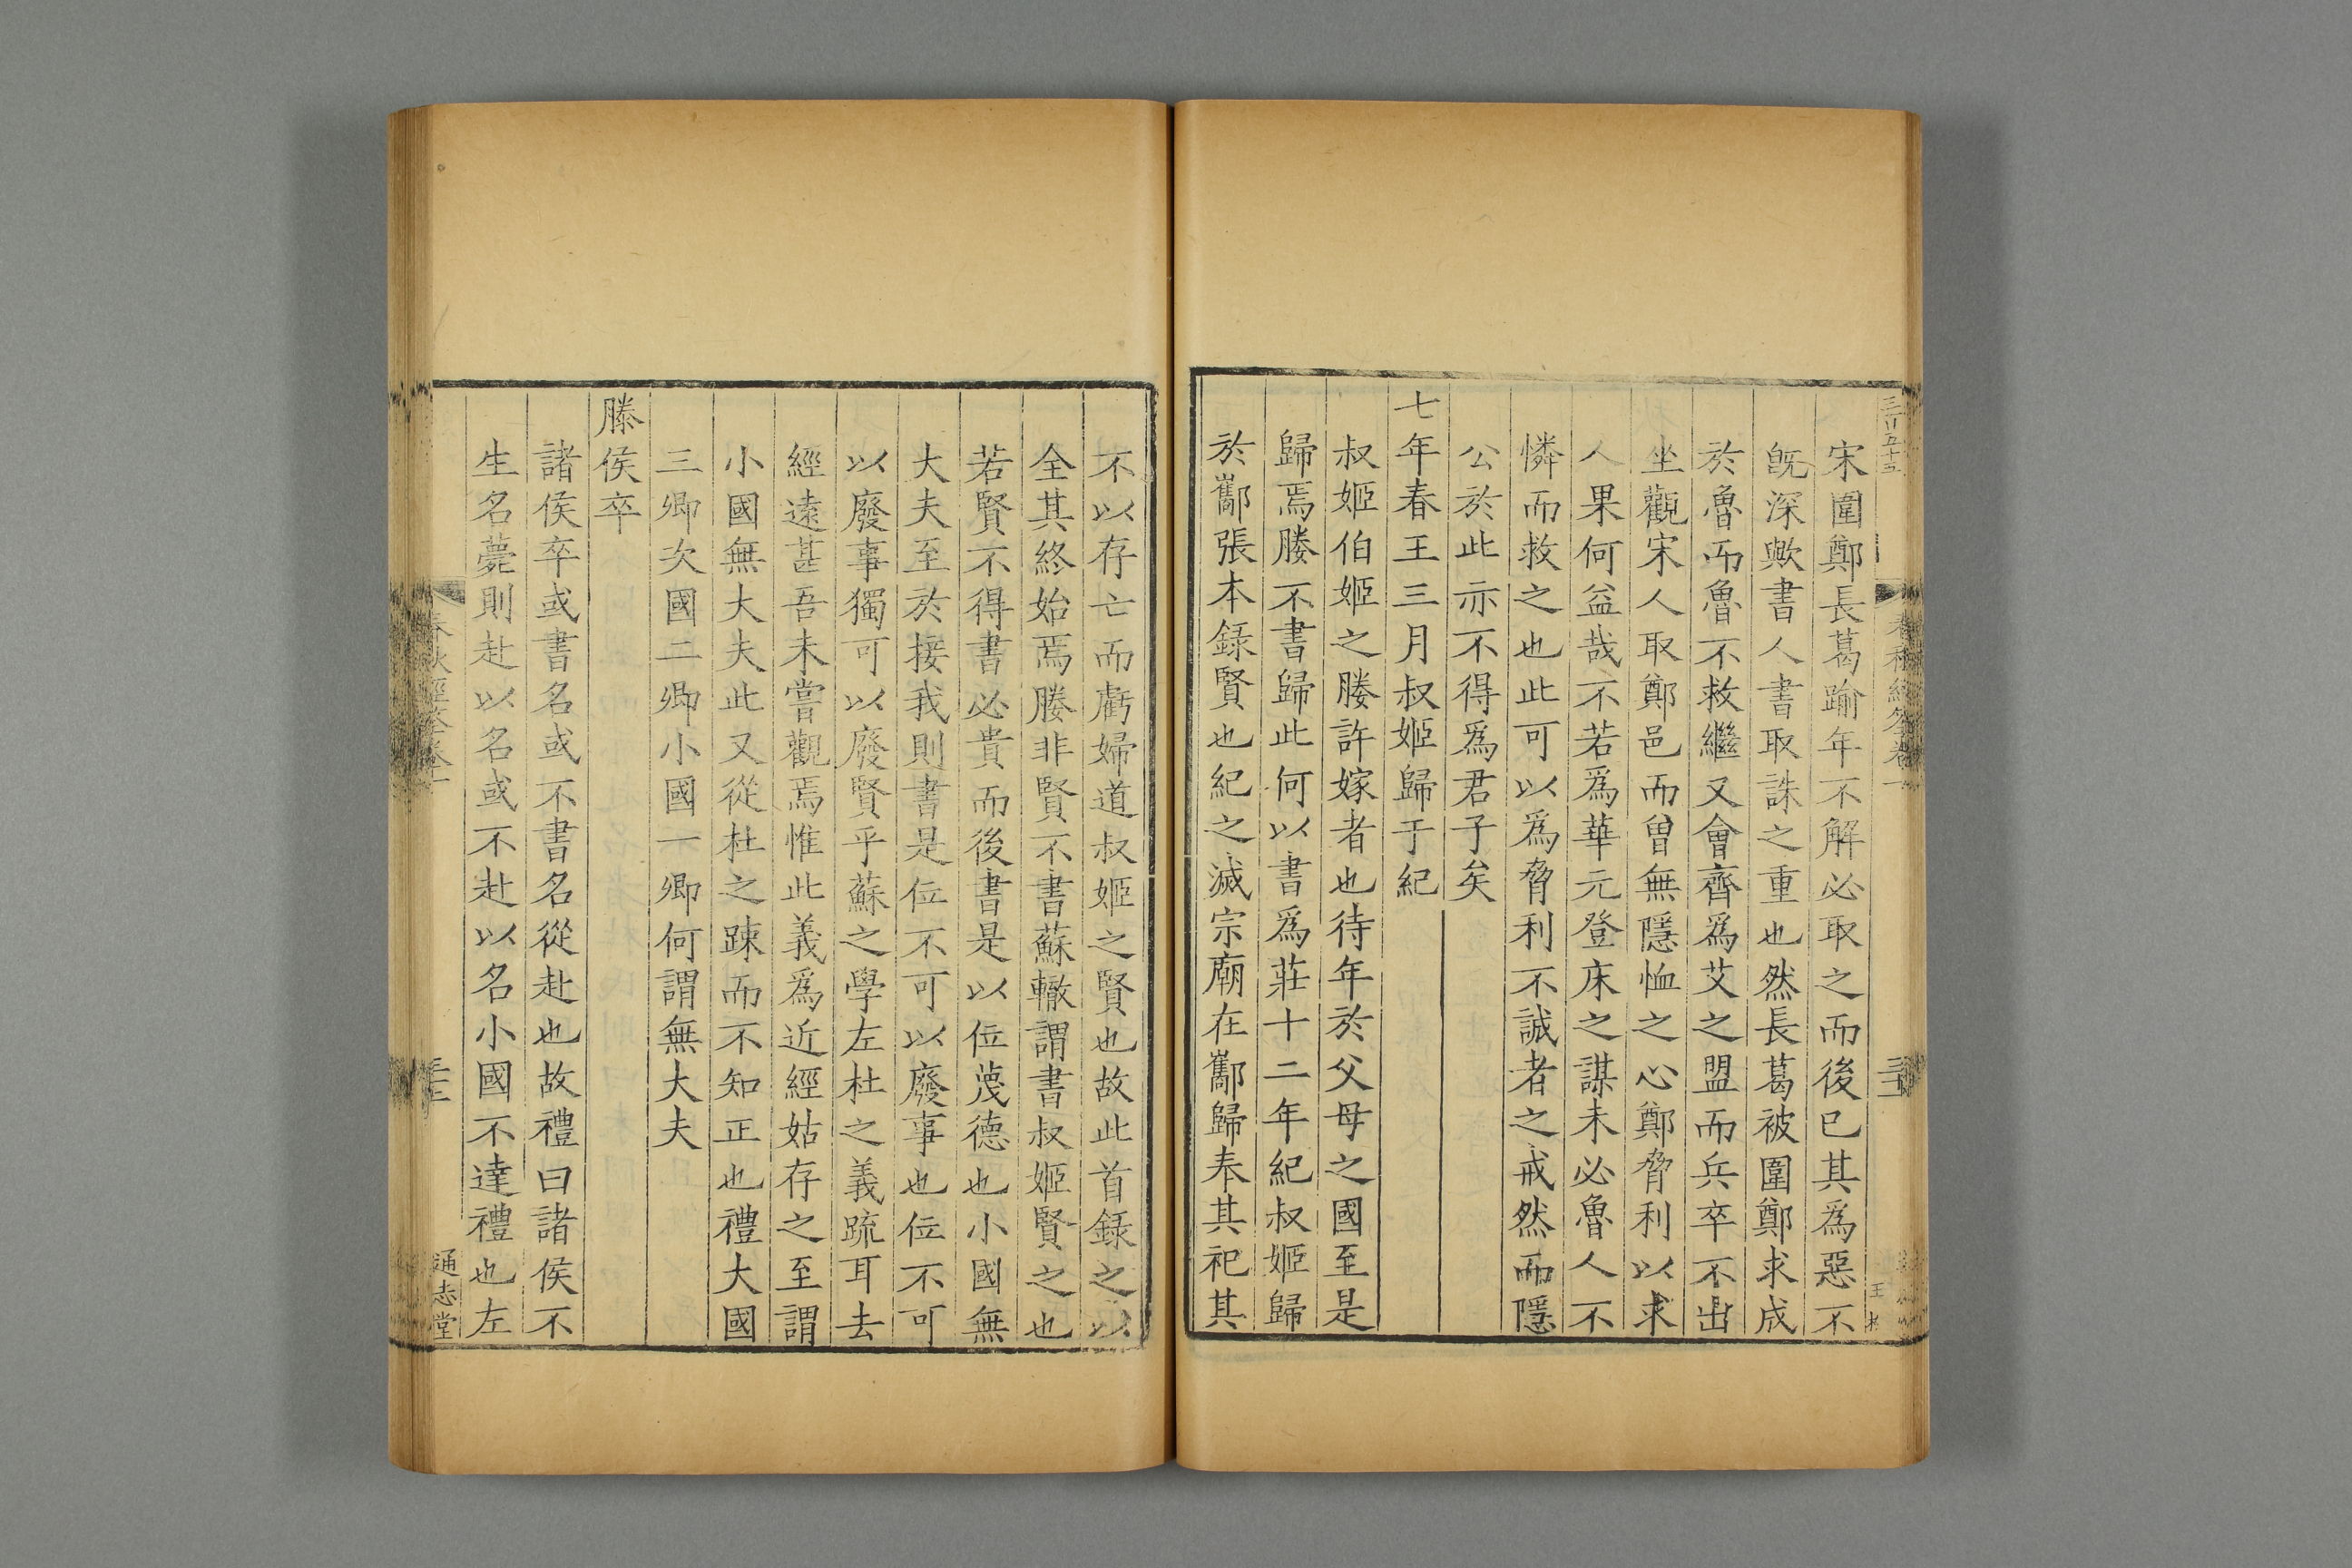 宋圍鄭長葛踰年不解必取之而後已其爲惡不
旣深歟書人書取誅之重也然長葛被圍鄭求成
於魯而魯不救繼又會齊爲艾之盟而兵卒不出
坐觀宋人取鄭邑而曾無隱恤之心鄭脅利以求
人果何益哉不若爲華元登床之謀未必魯人不
憐而救之也此可以爲脅利不誠者之戒然而隱
公於此亦不得爲君子矣
七年春王三月叔姬歸于紀
叔姬伯姬之媵許嫁者也待年於父母之國至是
歸焉媵不書歸此何以書爲莊十二年紀叔姬歸
於酅張本録賢也紀之滅宗廟在酅歸奉其祀其
不以存亡而虧婦道叔姬之賢也故此首録之以
全其終始焉媵非賢不書蘇轍謂書叔姬賢之也
若賢不得書必貴而後書是以位蔑德也小國無
大夫至於接我則書是位不可以廢事也位不可
以廢事獨可以廢賢乎蘇之學左杜之義疏耳去
經遠甚吾未嘗觀焉惟此義爲近經姑存之至謂
小國無大夫此又從杜之踈而不知正也禮大國
三卿次國二卿小國一卿何謂無大夫
滕侯卒
諸侯卒或書名或不書名從赴也故禮曰諸侯不
生名薨則赴以名或不赴以名小國不達禮也左
春秋經筌卷一
通志堂